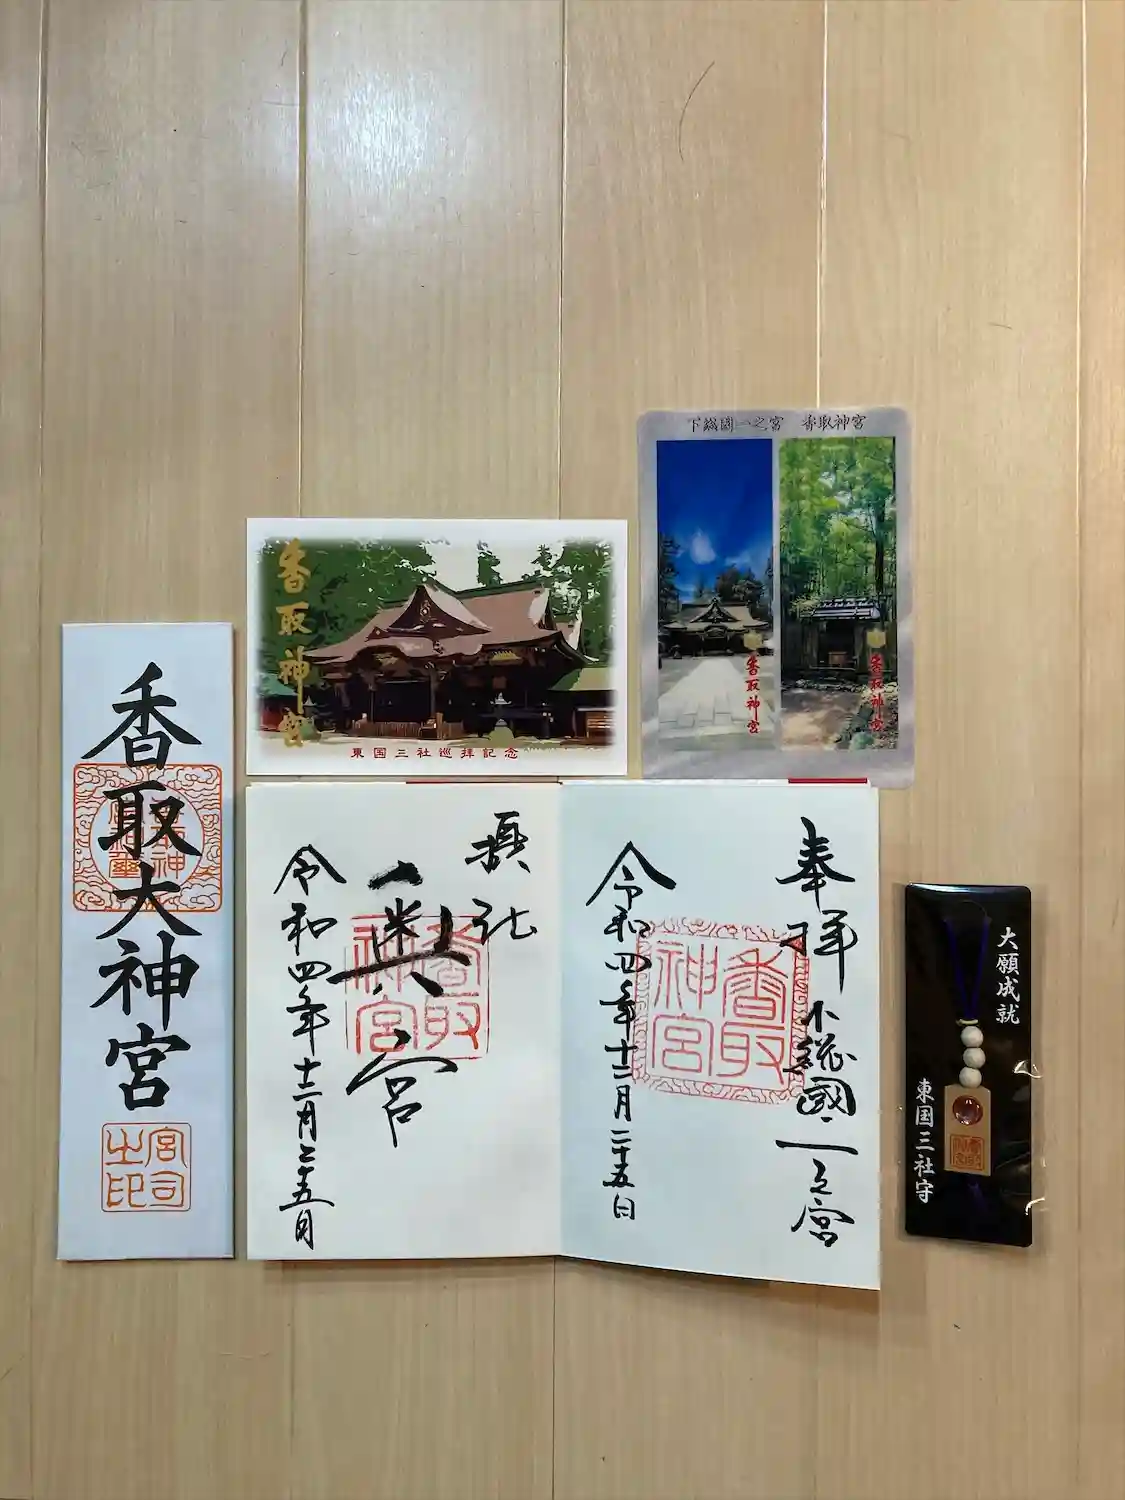 下総国一之宮　香取神宮
香取神宮
香取神宮
香取神宮
東国三社巡拝記念
香取大神宮
宮司之印
奉拝
下総國一之宮
香取神宮
令和四年十二月二十五日
奥宮
香取神宮
令和四年十二月二十五日
大願成就
東国三社守